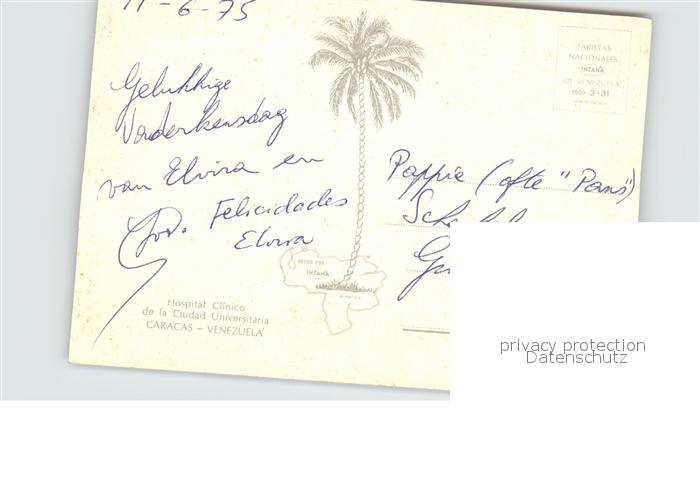 11-6-75
Gelukkige
Vaderkensdag
van Elvira en
Felicidades
Elvira
Hospital Clínico
de la Ciudad Universitaria
CARACAS - VENEZUELA
HECHO POR
INTANA
TARJETAS
NACIONALES
INTANA
DE VENEZUELA
1500 3-31
Pappie (ofte "Pans")
privacy protection
Datenschutz